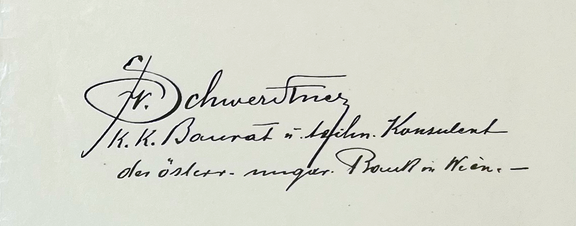 W. Schwerdtner
K. K. Baurat u. techn. Konsulent
der österr. ungar. Bank in Wien. —